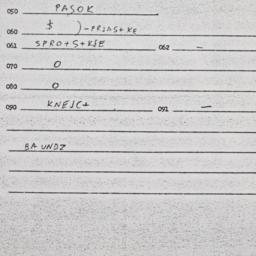 050 PASOK
060 $ )-PRJAS+KE
061 SPRO+S+KSE 062 -
070 O
080 O
090 KNEJC+ 091 -
BA UNDZ